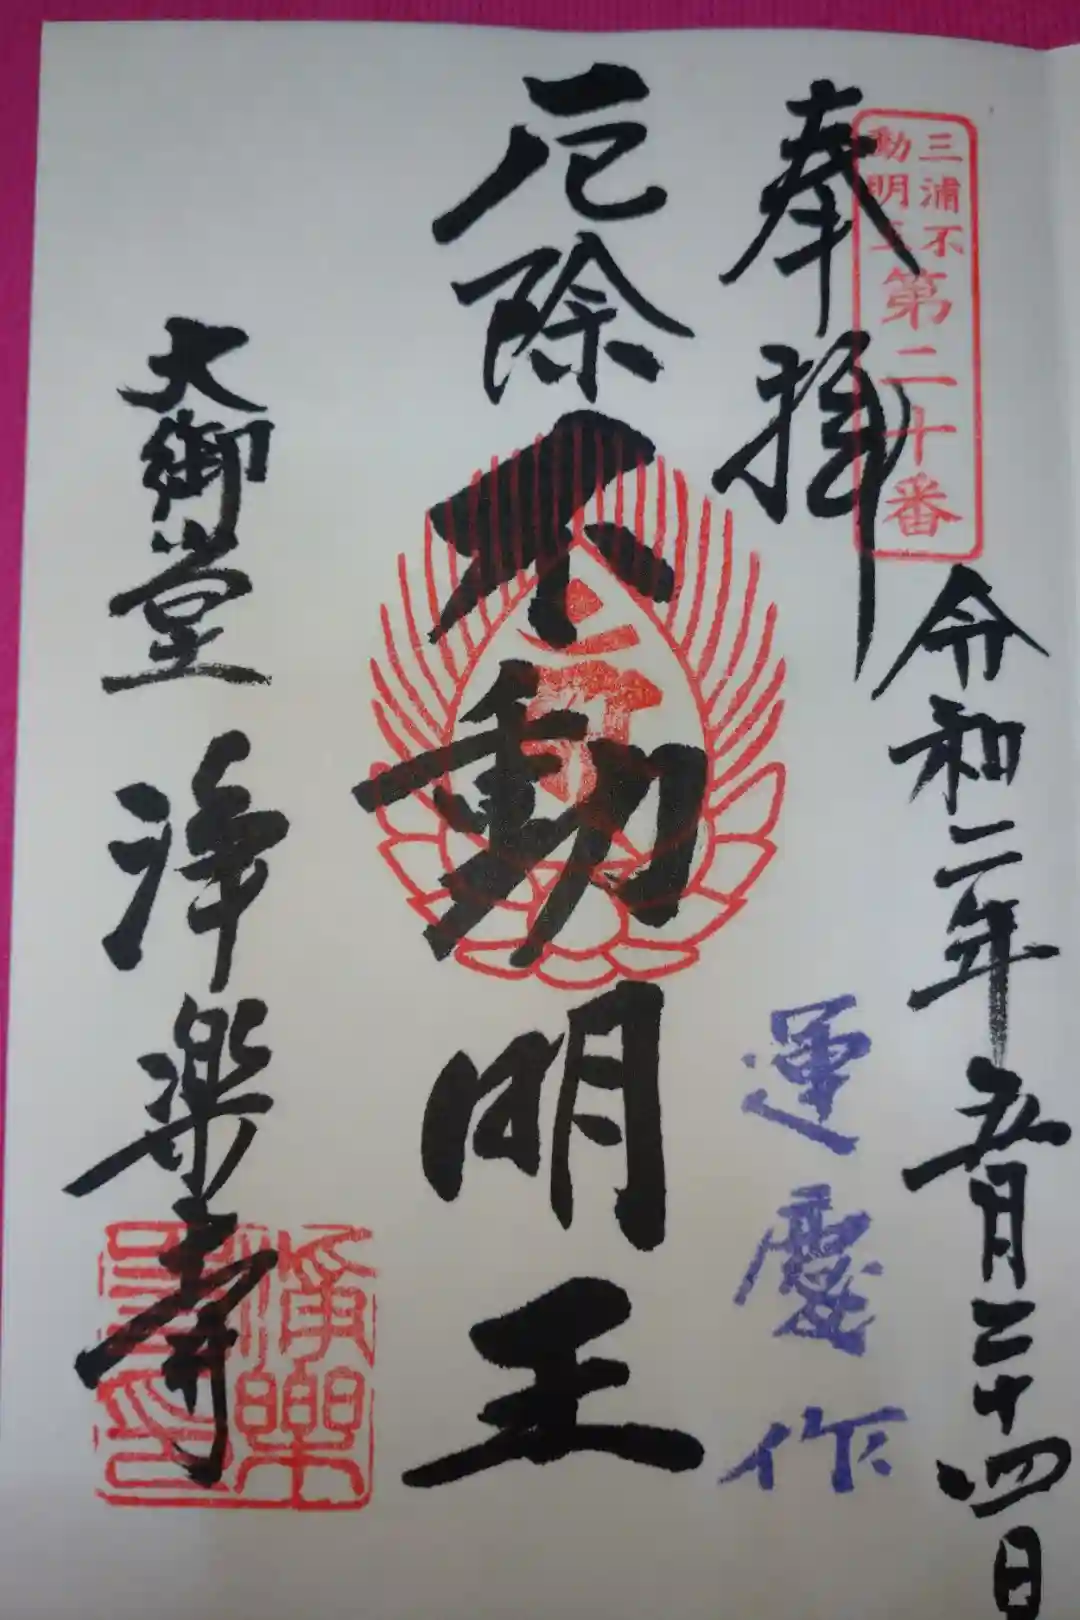 三浦不
動明王
第二十番
奉拝
令和二年五月二十四日
運慶作
厄除不動明王
大御堂 浄楽寺
浄楽